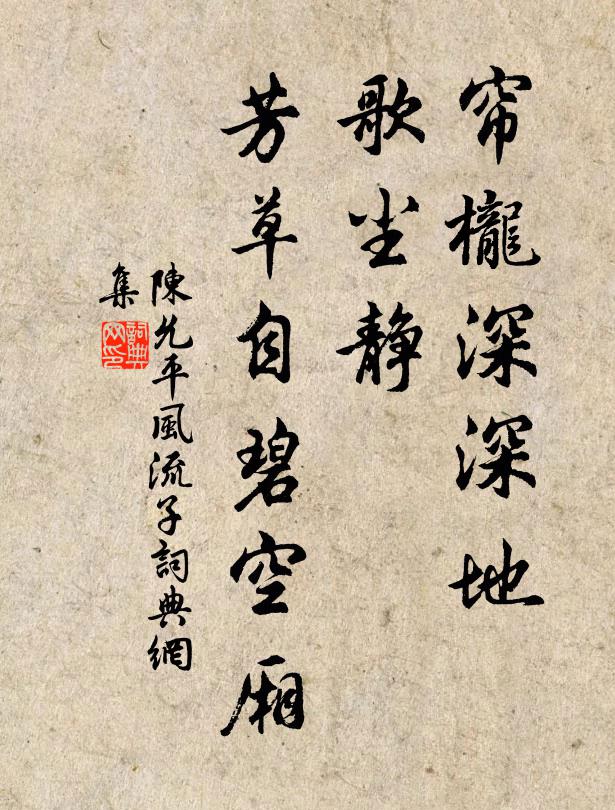 帘櫳深深地
歌尘静
芳草自碧空厢
陳允平風流子詞典網
集
詞典网印